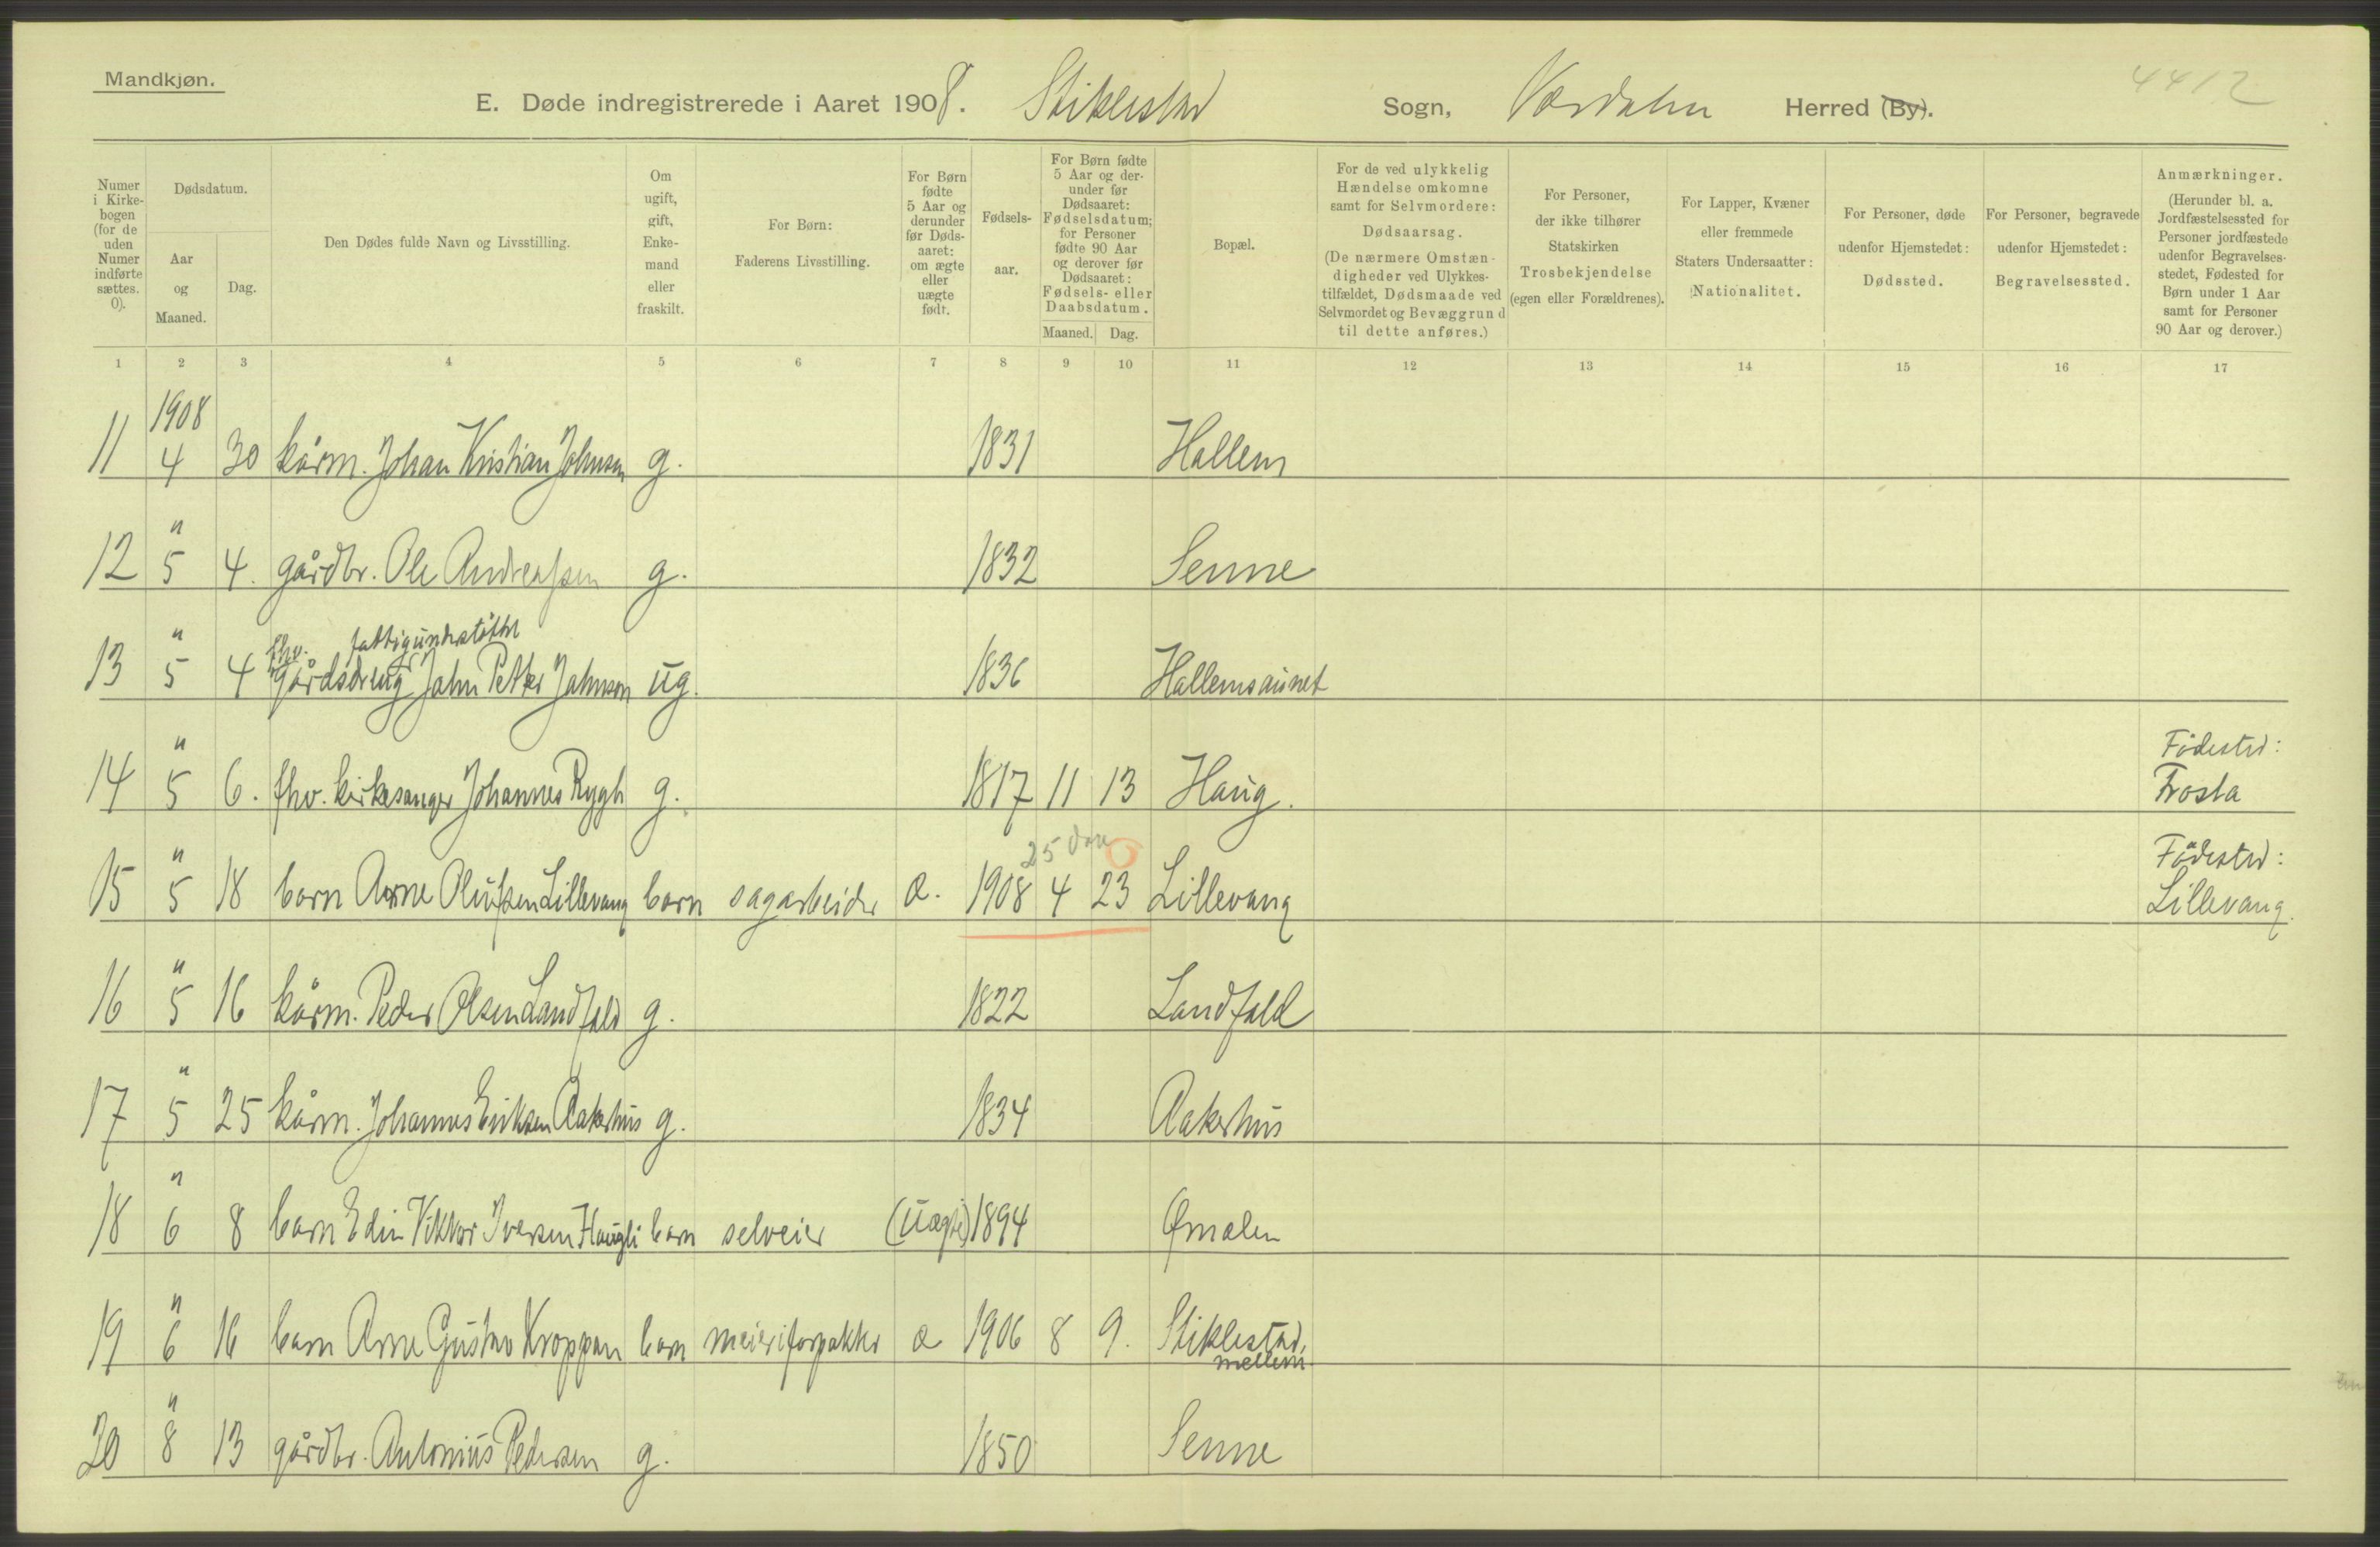 Mandkjøn.
4412
E. Døde indregistrerede i Aaret 1908. Stiklestad Sogn, Værdalen Herred (By).
Numer i Kirkebogen (for de uden Numer indførte sættes. 0).
Dødsdatum.
Aar og Maaned.
Dag.
Den Dødes fulde Navn og Livsstilling.
Om ugift, gift, Enkemand eller fraskilt.
For Børn: Faderens Livsstilling.
For Børn fødte 5 Aar og derunder før Dødsaaret: om ægte eller uægte født.
Fødselsaar.
For Børn fødte 5 Aar og derunder før Dødsaaret: Fødselsdatum; for Personer fødte 90 Aar og derover før Dødsaaret: Fødsels- eller Daabsdatum.
Maaned.
Dag.
Bopæl.
For de ved ulykkelig Hændelse omkomne samt for Selvmordere: Dødsaarsag. (De nærmere Omstændigheder ved Ulykkestilfældet, Dødsmaade ved Selvmordet og Bevæggrund til dette anføres.)
For Personer, der ikke tilhører Statskirken Trosbekjendelse (egen eller Forældrenes).
For Lapper, Kvæner eller fremmede Staters Undersaatter: Nationalitet.
For Personer, døde udenfor Hjemstedet: Dødssted.
For Personer, begravede udenfor Hjemstedet: Begravelsessted.
Anmærkninger. (Herunder bl. a. Jordfæstelsessted for Personer jordfæstede udenfor Begravelsesstedet, Fødested for Børn under 1 Aar samt for Personer 90 Aar og derover.)
1 2 3 4 5 6 7 8 9 10 11 12 13 14 15 16 17
1908
11 4 30 kårm. Johan Kristian Johnsen g. 1831 Hallem
"
12 5 4. gårdbr. Ole Andreassen g. 1832 Senne
" fhv. fattigunderstøttet
13 5 4 gårdsdreng John Petter Johnson ug. 1836 Hallemsaunet
" Fødested:
14 5 6. fhv. kirkesanger Johannes Rygh g. 1817 11 13 Haug. Frosta
" 25 dage 0 Fødested:
15 5 18 barn Arne Olufsen Lillevang barn sagarbeider æ. 1908 4 23 Lillevang Lillevang.
"
16 5 16 kårm. Peder Olsen Landfald g. 1822 Landfald
"
17 5 25 kårm. Johannes Eriksen Aakerhus g. 1834 Aakerhus
"
18 6 8 barn Edin Viktor Iversen Haugli barn selveier (uægte) 1894 Ømalen
"
19 6 16 barn Arne Gustav Kroppan barn meieriforpakter æ 1906 8 9. Stiklestad,
mellem.
"
20 8 13 gårdbr. Antonius Pedersen g. 1850 Senne